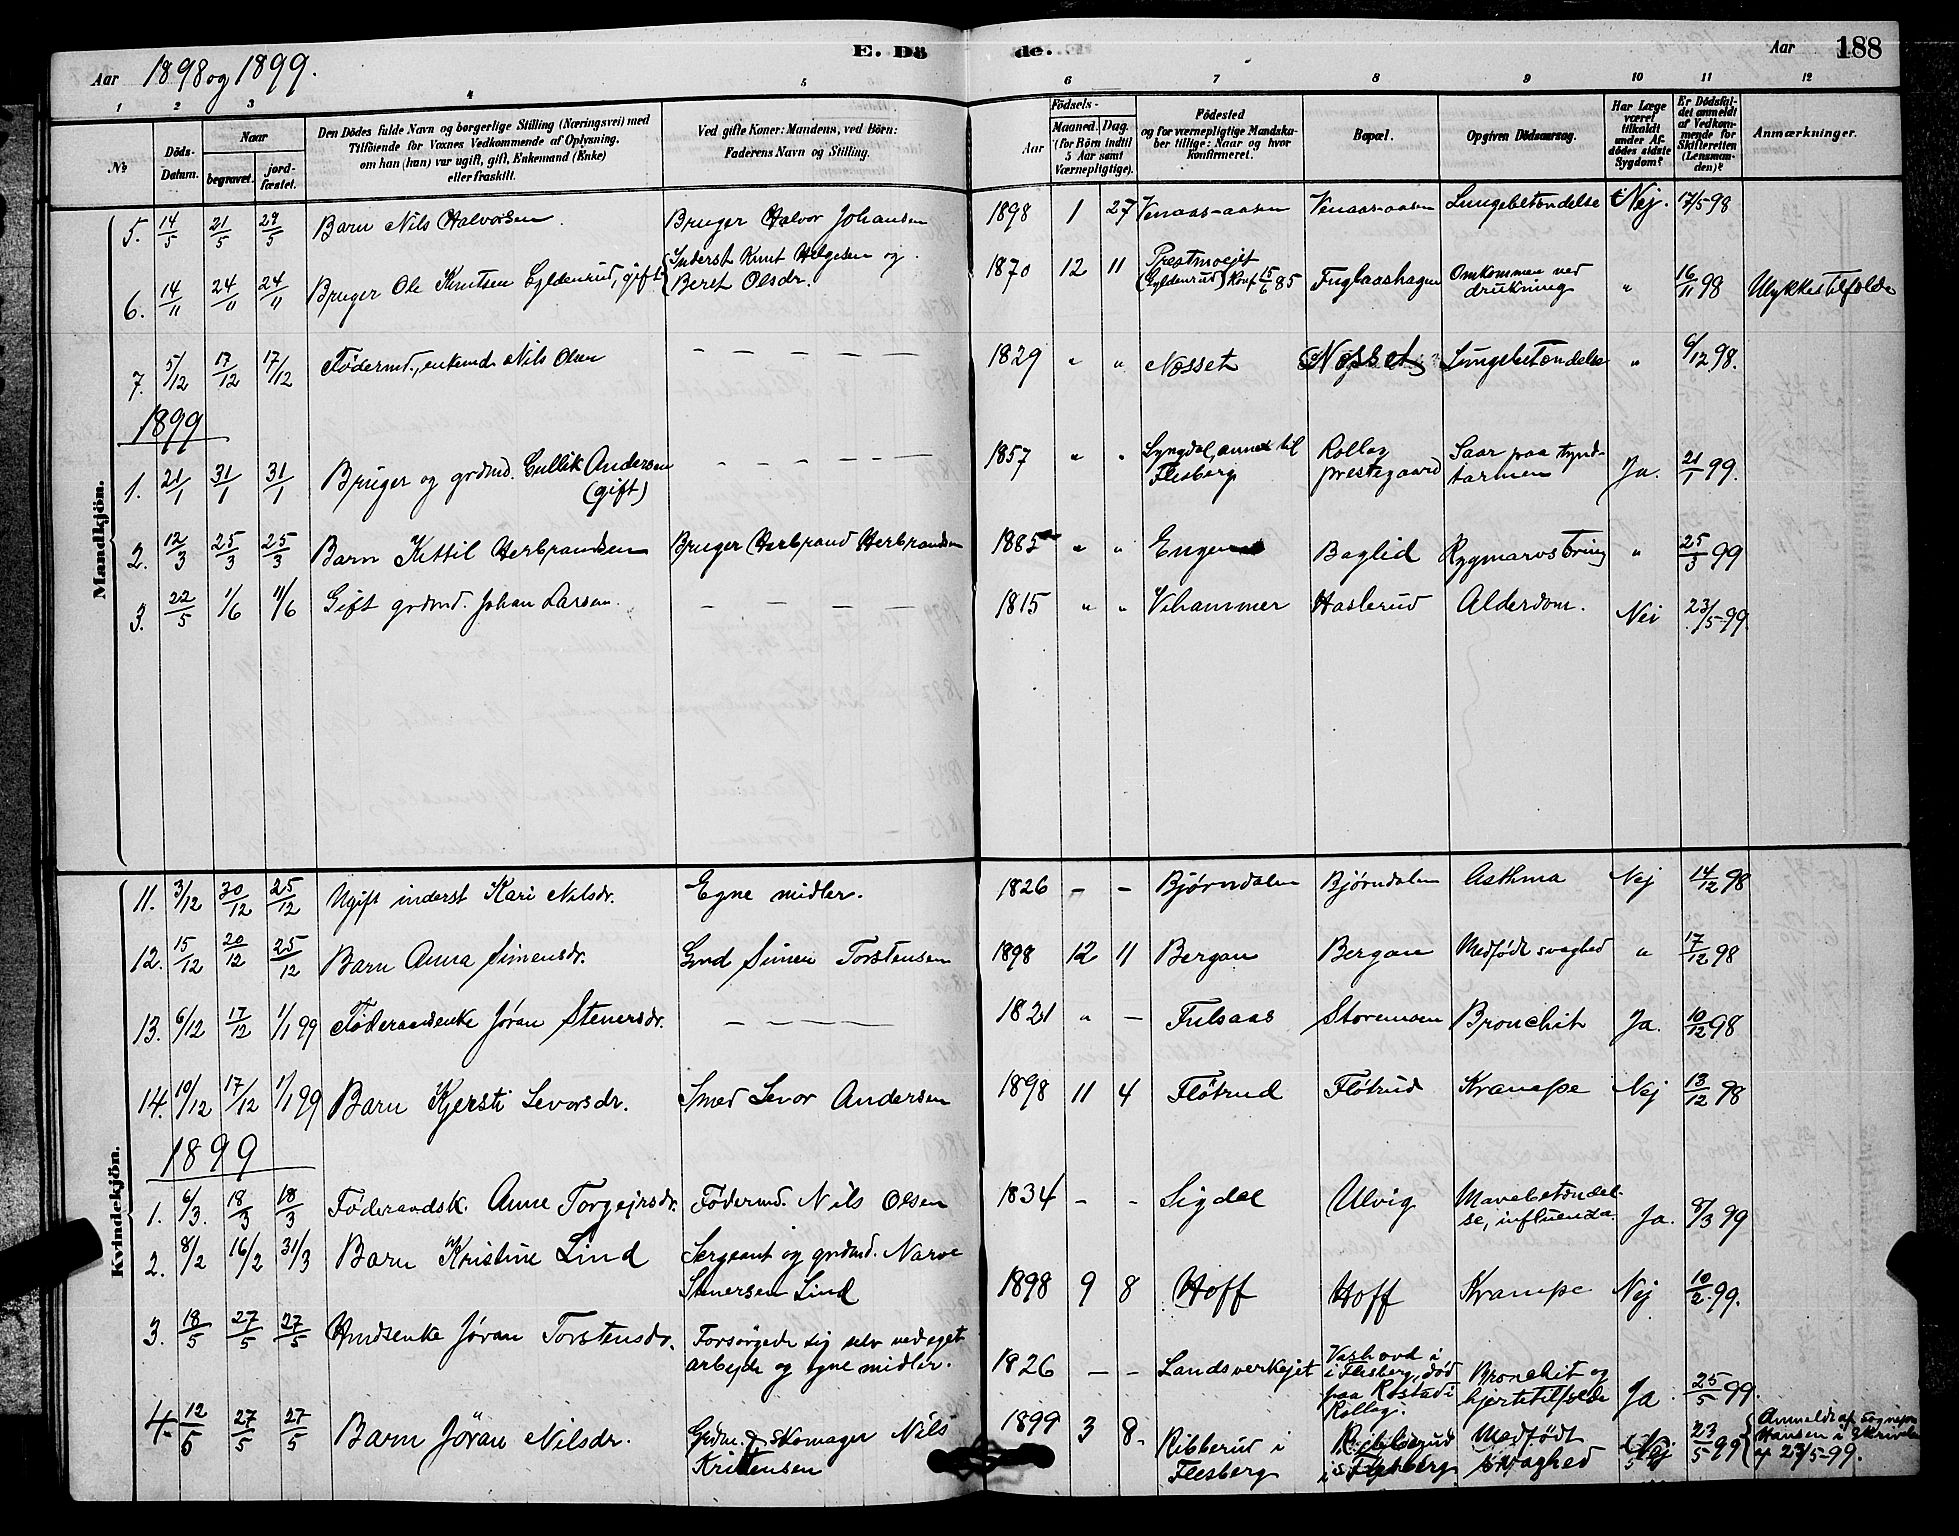 Aar 1898 og 1899. E. Dö de. Aar 188
1 2 3 4 5 6 7 8 9 10 11 12
No. Döds-Datum. Naar begravet. jordfæstet. Den Dödes fulde Navn og borgerlige Stilling (Næringsvei) med Tilföiende for Voxnes Vedkommende af Oplysning, om han (hun) var ugift, gift, Enkemand (Enke) eller fraskilt. Ved gifte Koner: Mandens, ved Börn: Faderens Navn og Stilling. Födsels- Aar Maaned. Dag. (for Börn indtil 5 Aar samt Værnepligtige). Födested og for værnepligtige Mandskaber tillige: Naar og hvor konfirmeret. Bopæl. Opgiven Dödsaarsag. Har Læge været tilkaldt under Afdödes sidste Sygdom? Er Dödsfaldet anmeldt af Vedkommende for Skifteretten (Lensmanden)? Anmærkninger.
Mandkjön.
5. 14/5 21/5 29/5 Barn Nils Halvorsen. Bruger Halvor Johansen 1898 1 27 Venaas-aasen Venaas-aasen Lungebetændelse Nej. 17/5 98
6. 14/11 24/11 24/11 Bruger Ole Knutsen Gyldenrud, gift Inderst Knut Helgesen og Beret Olsdr. 1870 12 11 Prestmoejet (Gyldenrud) Konf 15/6 85 Fuglaashagen Omkommen ved drukning " 16/11 98 Ulykkestilfælde
7. 5/12 17/12 17/12 Födermd., enkemd. Nils Olsen — — — — — 1829 " " Nosset Nosset Lungebetændelse " 6/12 98.
1899
1. 21/1 31/1 31/1 Bruger og grdmd. Gullik Andersen (gift) — — — — — 1857 " " Lyngdal, annex til Flesberg Rollag prestegaard Saar paa tyndtarmen Ja. 21/1 99.
2. 12/3 25/3 25/3 Barn Kittil Herbrandsen Bruger Herbrand Herbrandsen 1885 " " Engen Baglid Rygmarvstæring " 25/3 99
3. 22/5 1/6 11/6 Gift grdmd. Johan Larsen. — — — — 1815 " " Vihammer Haslerud Alderdom. Nei 23/5 99.
Kvindekjön.
11. 3/12 30/12 25/12 Ugift inderst Kari Nilsdr. Egne midler. 1826 — — Bjørndalen Bjørndalen Asthma Nej 14/12 98
12. 15/12 20/12 25/12 Barn Anna Simensdr. Gmd Simen Torstensen 1898 12 11 Bergan Bergan Medfödt svaghed " 17/12 98
13. 6/12 17/12 1/1 99 Föderaadsenke Jöran Stenersdr. — — — — 1821 " — Fulsaas Storemoen Bronchit Ja. 10/12 98
14. 10/12 17/12 1/1 99 Barn Kjersti Levorsdr. Smed Levor Andersen 1898 11 4 Flötrud Flötrud Krampe Nej 13/12 98
1899
1. 6/3. 18/3 18/3 Föderaadsk. Anne Torgejrsdr. Födermd. Nils Olsen 1834 — — Sigdal Ulvig Mavebetændelse, influenda. Ja. 8/3 99
2. 8/2 16/2 31/3 Barn Kristine Lind Sergeant og grdmd. Narve Stenersen Lind 1898 9 8 Hoff Hoff Krampe Nej 10/2 99.
3. 18/5 27/5 27/5 Husenke Jöran Torstensdr. Forsörgede sig selv ved eget arbejde og egne midler. 1826 — — Landsverkejet Vashovd i Flesberg, död paa Rostad i Rollag. Bronchit og hjertetilfælde Ja 25/5 99.
4. 12/5 27/5 27/5 Barn Jöran Nilsdr. Grdm. & skomager Nils Kristensen 1899 3 8. Ribberud i Flesberg Ribberud i Flesberg Medfödt svaghed Nej 23/5 99 Anmeldt af Hansen i 23/5-99.